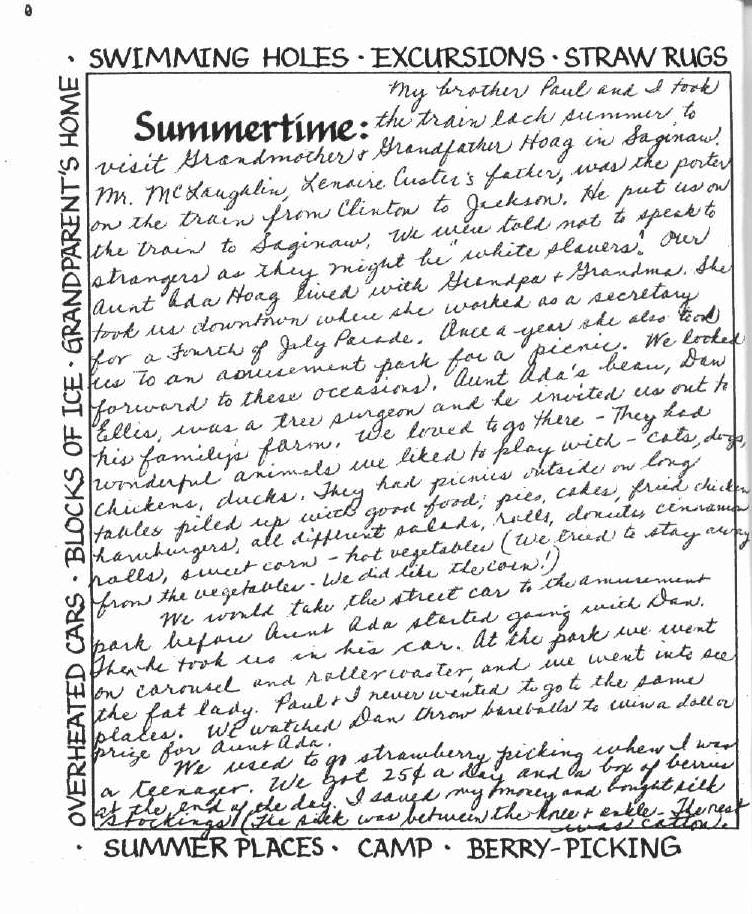 0
· SWIMMING HOLES · EXCURSIONS · STRAW RUGS
OVERHEATED CARS · BLOCKS OF ICE · GRANDPARENT'S HOME
Summertime:
My brother Paul and I took
the train each summer to
visit Grandmother & Grandfather Hoag in Saginaw.
Mr. McLaughlin, Lenaire Custer's father, was the porter
on the train from Clinton to Jackson. He put us on
the train to Saginaw. We were told not to speak to
strangers as they might be "white slavers". Our
Aunt Ada Hoag lived with Grandpa & Grandma. She
took us downtown where she worked as a secretary
for a Fourth of July Parade. Once a year she also took
us to an amusement park for a picnic. We looked
forward to these occasions. Aunt Ada's beau, Dan
Ellis, was a tree surgeon and he invited us out to
his family's farm. We loved to go there - They had
wonderful animals we liked to play with - cats, dogs,
chickens, ducks. They had picnics outside on long
tables piled up with good food; pies, cakes, fried chicken
hamburgers, all different salads, rolls, donuts, cinnamon
rolls, sweet corn - hot vegetables (We tried to stay away
from the vegetables - We did like the corn!)
We would take the street car to the amusement
park before Aunt Ada started going with Dan.
Then he took us in his car. At the park we went
on carousel and roller coaster, and we went into see
the fat lady. Paul & I never wanted to go to the same
places. We watched Dan throw baseballs to win a doll or
prize for Aunt Ada.
We used to go strawberry picking when I was
a teenager. We got 25¢ a day and a box of berries
at the end of the day. I saved my money and bought silk
stockings (The silk was between the knee & ankle - The rest
was cotton.
· SUMMER PLACES · CAMP · BERRY-PICKING